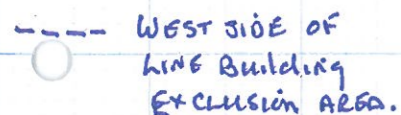 WEST SIDE OF
LINE Building
EXCLUSION AREA.